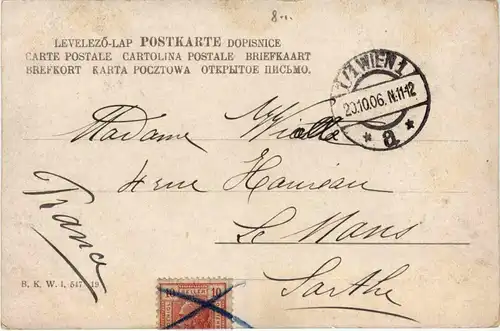 8
LEVELEZŐ-LAP POSTKARTE DOPISNICE
CARTE POSTALE CARTOLINA POSTALE BRIEFKAART
BREFKORT KARTA POCZTOWA ОТКРЫТОЕ ПИСЬМО.
1/1 WIEN 1
20.10.06. N:11-12
* a *
Madame
4 rue
Le Mans
Sarthe
France
B. K. W. I, 547 19
10 10